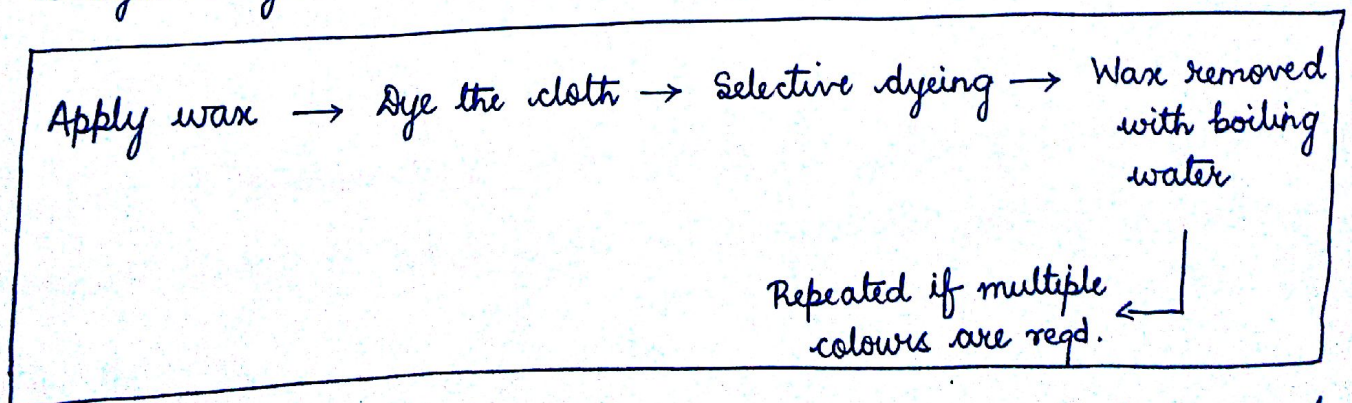 Apply wax → Dye the cloth → Selective dyeing → Wax removed
with boiling
water
Repeated if multiple
colours are reqd.